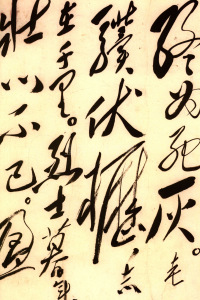 終为死灰。老
驥伏櫪，志
在千里。烈士暮年
壮心不已。盈